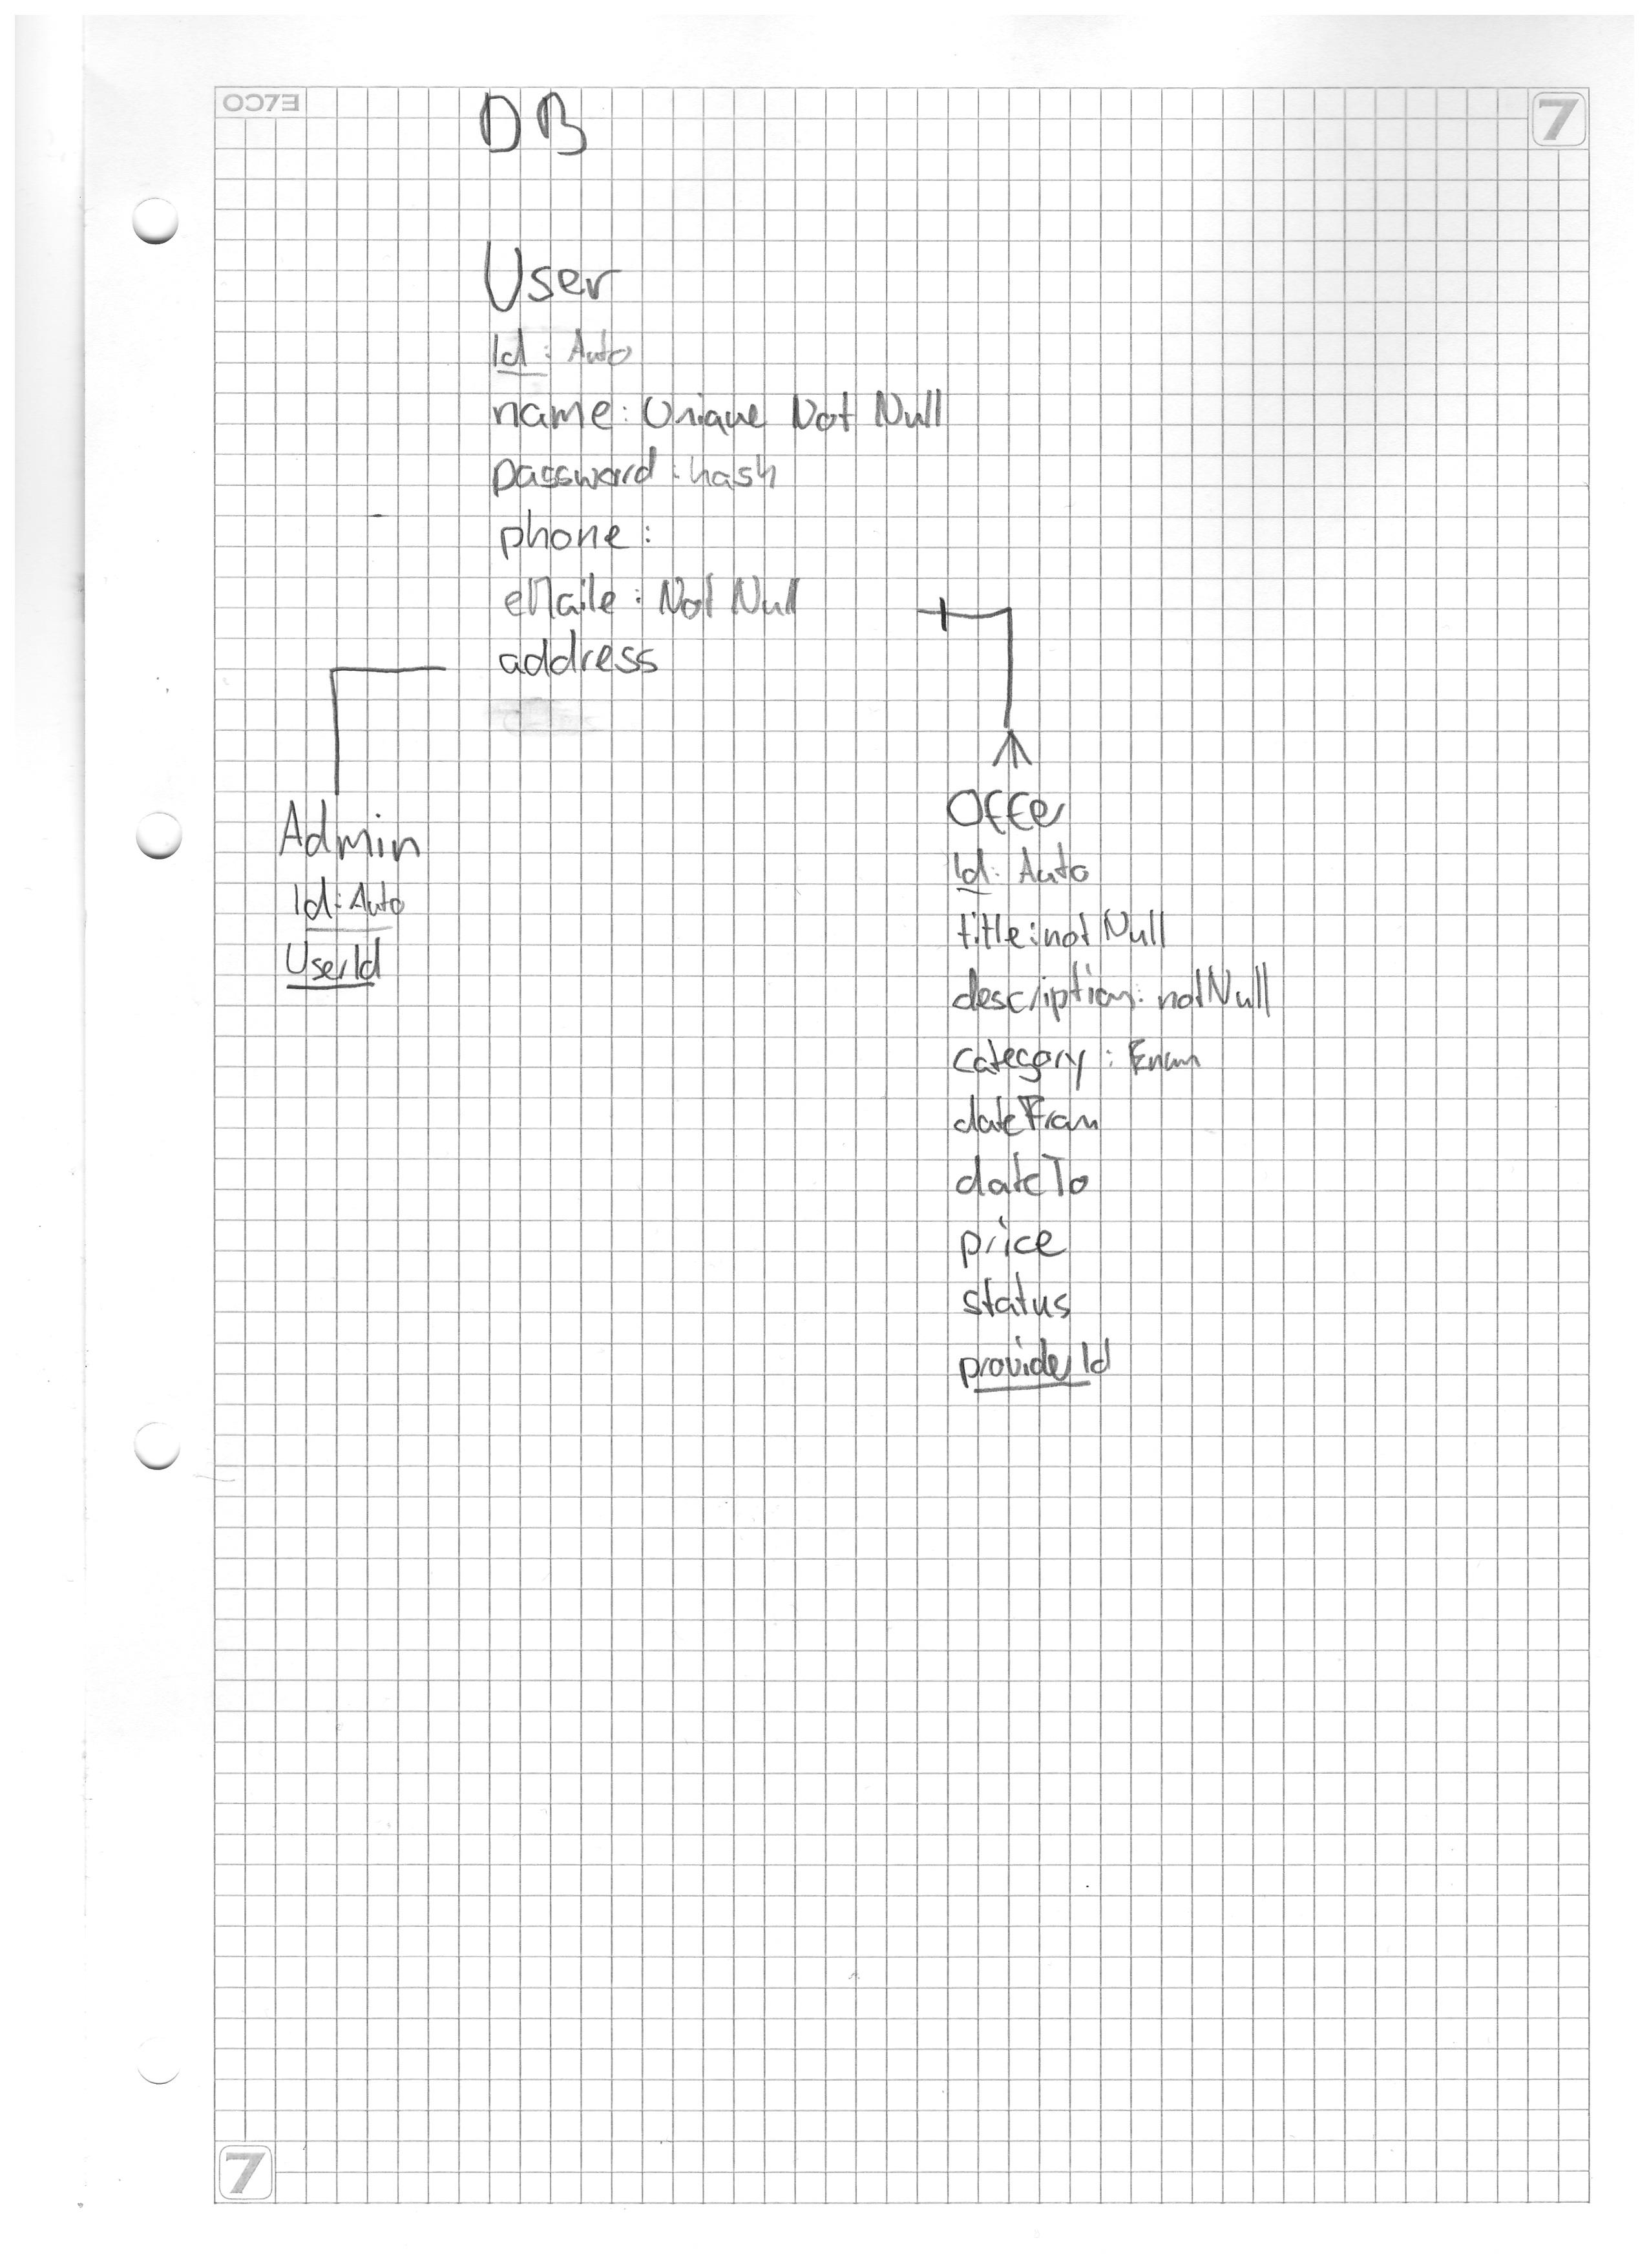 ELCO
7
DB
User
Id : Auto
name: Unique Not Null
password : hash
phone :
eMaile : Not Null
address
Admin
Id: Auto
UserId
Offer
Id: Auto
title: not Null
description: not Null
category : Enum
dateFrom
dateTo
price
status
providerId
7